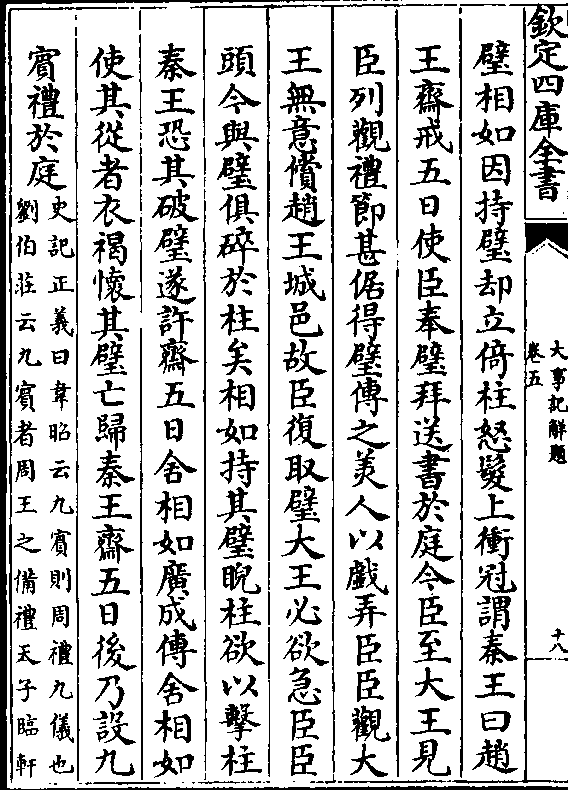 欽定四庫全書
大事記解題
卷五
十八
璧相如因持璧却立倚柱怒髮上衝冠謂秦王曰趙
王齋戒五日使臣奉璧拜送書於庭今臣至大王見
臣列觀禮節甚倨得璧傳之美人以戲弄臣臣觀大
王無意償趙王城邑故臣復取璧大王必欲急臣臣
頭今與璧俱碎於柱矣相如持其璧睨柱欲以擊柱
秦王恐其破璧遂許齋五日舍相如廣成傳舍相如
使其從者衣褐懷其璧亡歸秦王齋五日後乃設九
賓禮於庭
史記正義曰韋昭云九賓則周禮九儀也
劉伯莊云九賓者周王之備禮天子臨軒